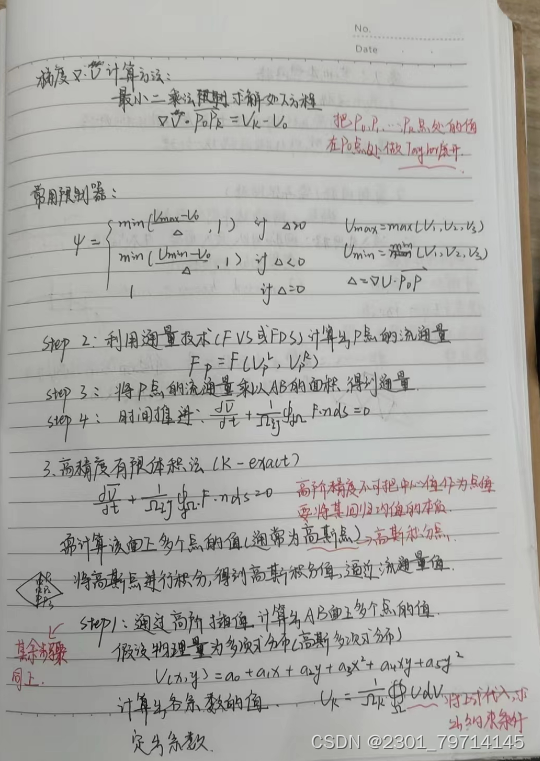 No.
Date
梯度▽·U计算方法:
最小二乘法 求解如下方程
▽U·P₀Pₖ = Vₖ - V₀
把P₀,P₁…Pₖ点处的值
在P₀点处做Taylor展开.
常用限制器:
ψ = { min(Umax-U₀/Δ, 1) if Δ>0 Umax=max(U₁,U₂,U₃)
min(Umin-U₀/Δ, 1) if Δ<0 Umin=min(U₁,U₂,U₃)
1 if Δ=0 Δ=▽U·P₀P
step 2: 利用通量技术(FVS或FDS)计算出P点的流通量
F_P = F(U_P^L, U_P^R)
step 3: 将P点的流通量乘以AB的面积,得到通量.
step 4: 时间推进: dU/dt + 1/Ωij ∮∂Ω F·n ds = 0
3.高精度有限体积法(K-exact)
dU/dt + 1/Ωij ∮∂Ω F·n ds = 0
高阶精度不可把中心值作为点值
要将其回归均值的本质.
需计算该面上多个点的值(通常为高斯点)→高斯积分点
将高斯点进行积分,得到高斯积分值,逼近流通量值.
step1: 通过高阶插值,计算出AB面上多个点的值.
其余步骤
同上.
假设物理量为多项式分布(高斯多项式分布)
U(x,y) = a₀ + a₁x + a₂y + a₃x² + a₄xy + a₅y²
计算出各系数的值. Uₖ = 1/Ωₖ ∯Ω UdV
将上式代入,求
定出系数.
CSDN @2301_79714145